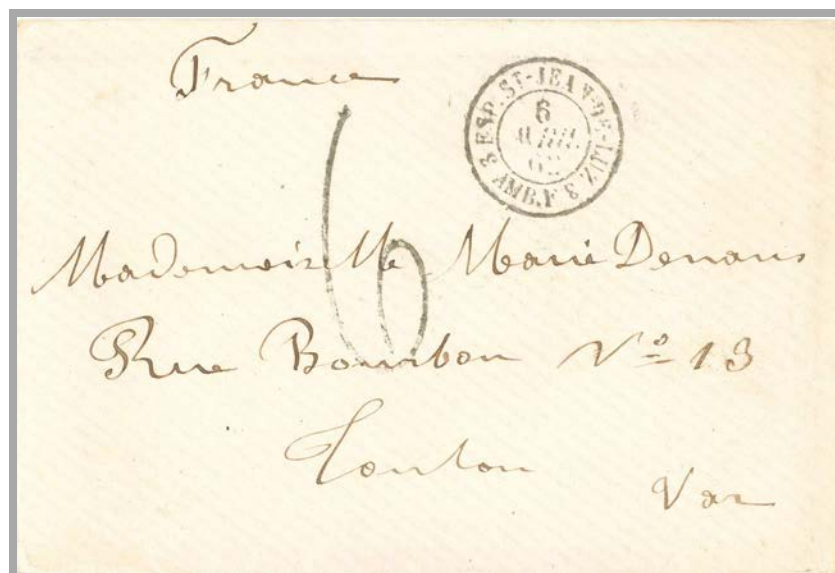 France
ESP. ST-JEAN-DE-LUZ
6
AVRIL
62
AMB. F
3 3
6
Mademoiselle Marie Denans
Rue Bourbon N° 13
Toulon
Var